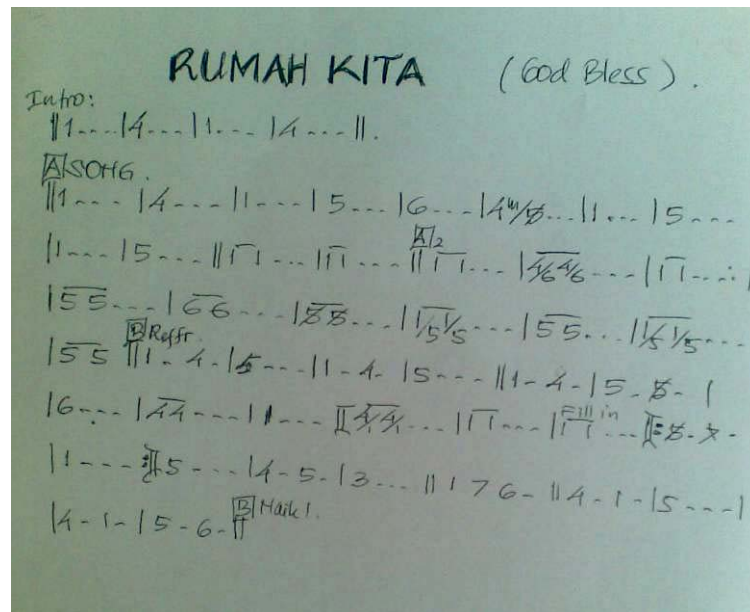 RUMAH KITA (God Bless).
Intro:
||1...|4...|1...|4...||.
A SONG.
||1...|4...|1...|5...|6...|4 ...|1...|5...
|1...|5...||1 1...|1 1...||1 1...|4/6 4/6...|1 1...|
A2
|5 5...|6 6...| ...|1/5 1/5...|5 5...|1/5 1/5...
B Reffr.
|5 5 ||1-4-|5---|1-4-|5---||1-4-|5- - |
|6...|4 4...|1...||4/1 4/1...|1 1...|1 1...
Fill in
|1---:||5---|4-5-|3...||1 7 6-||4-1-|5---|
|4-1-|5-6-||
B Naik 1.